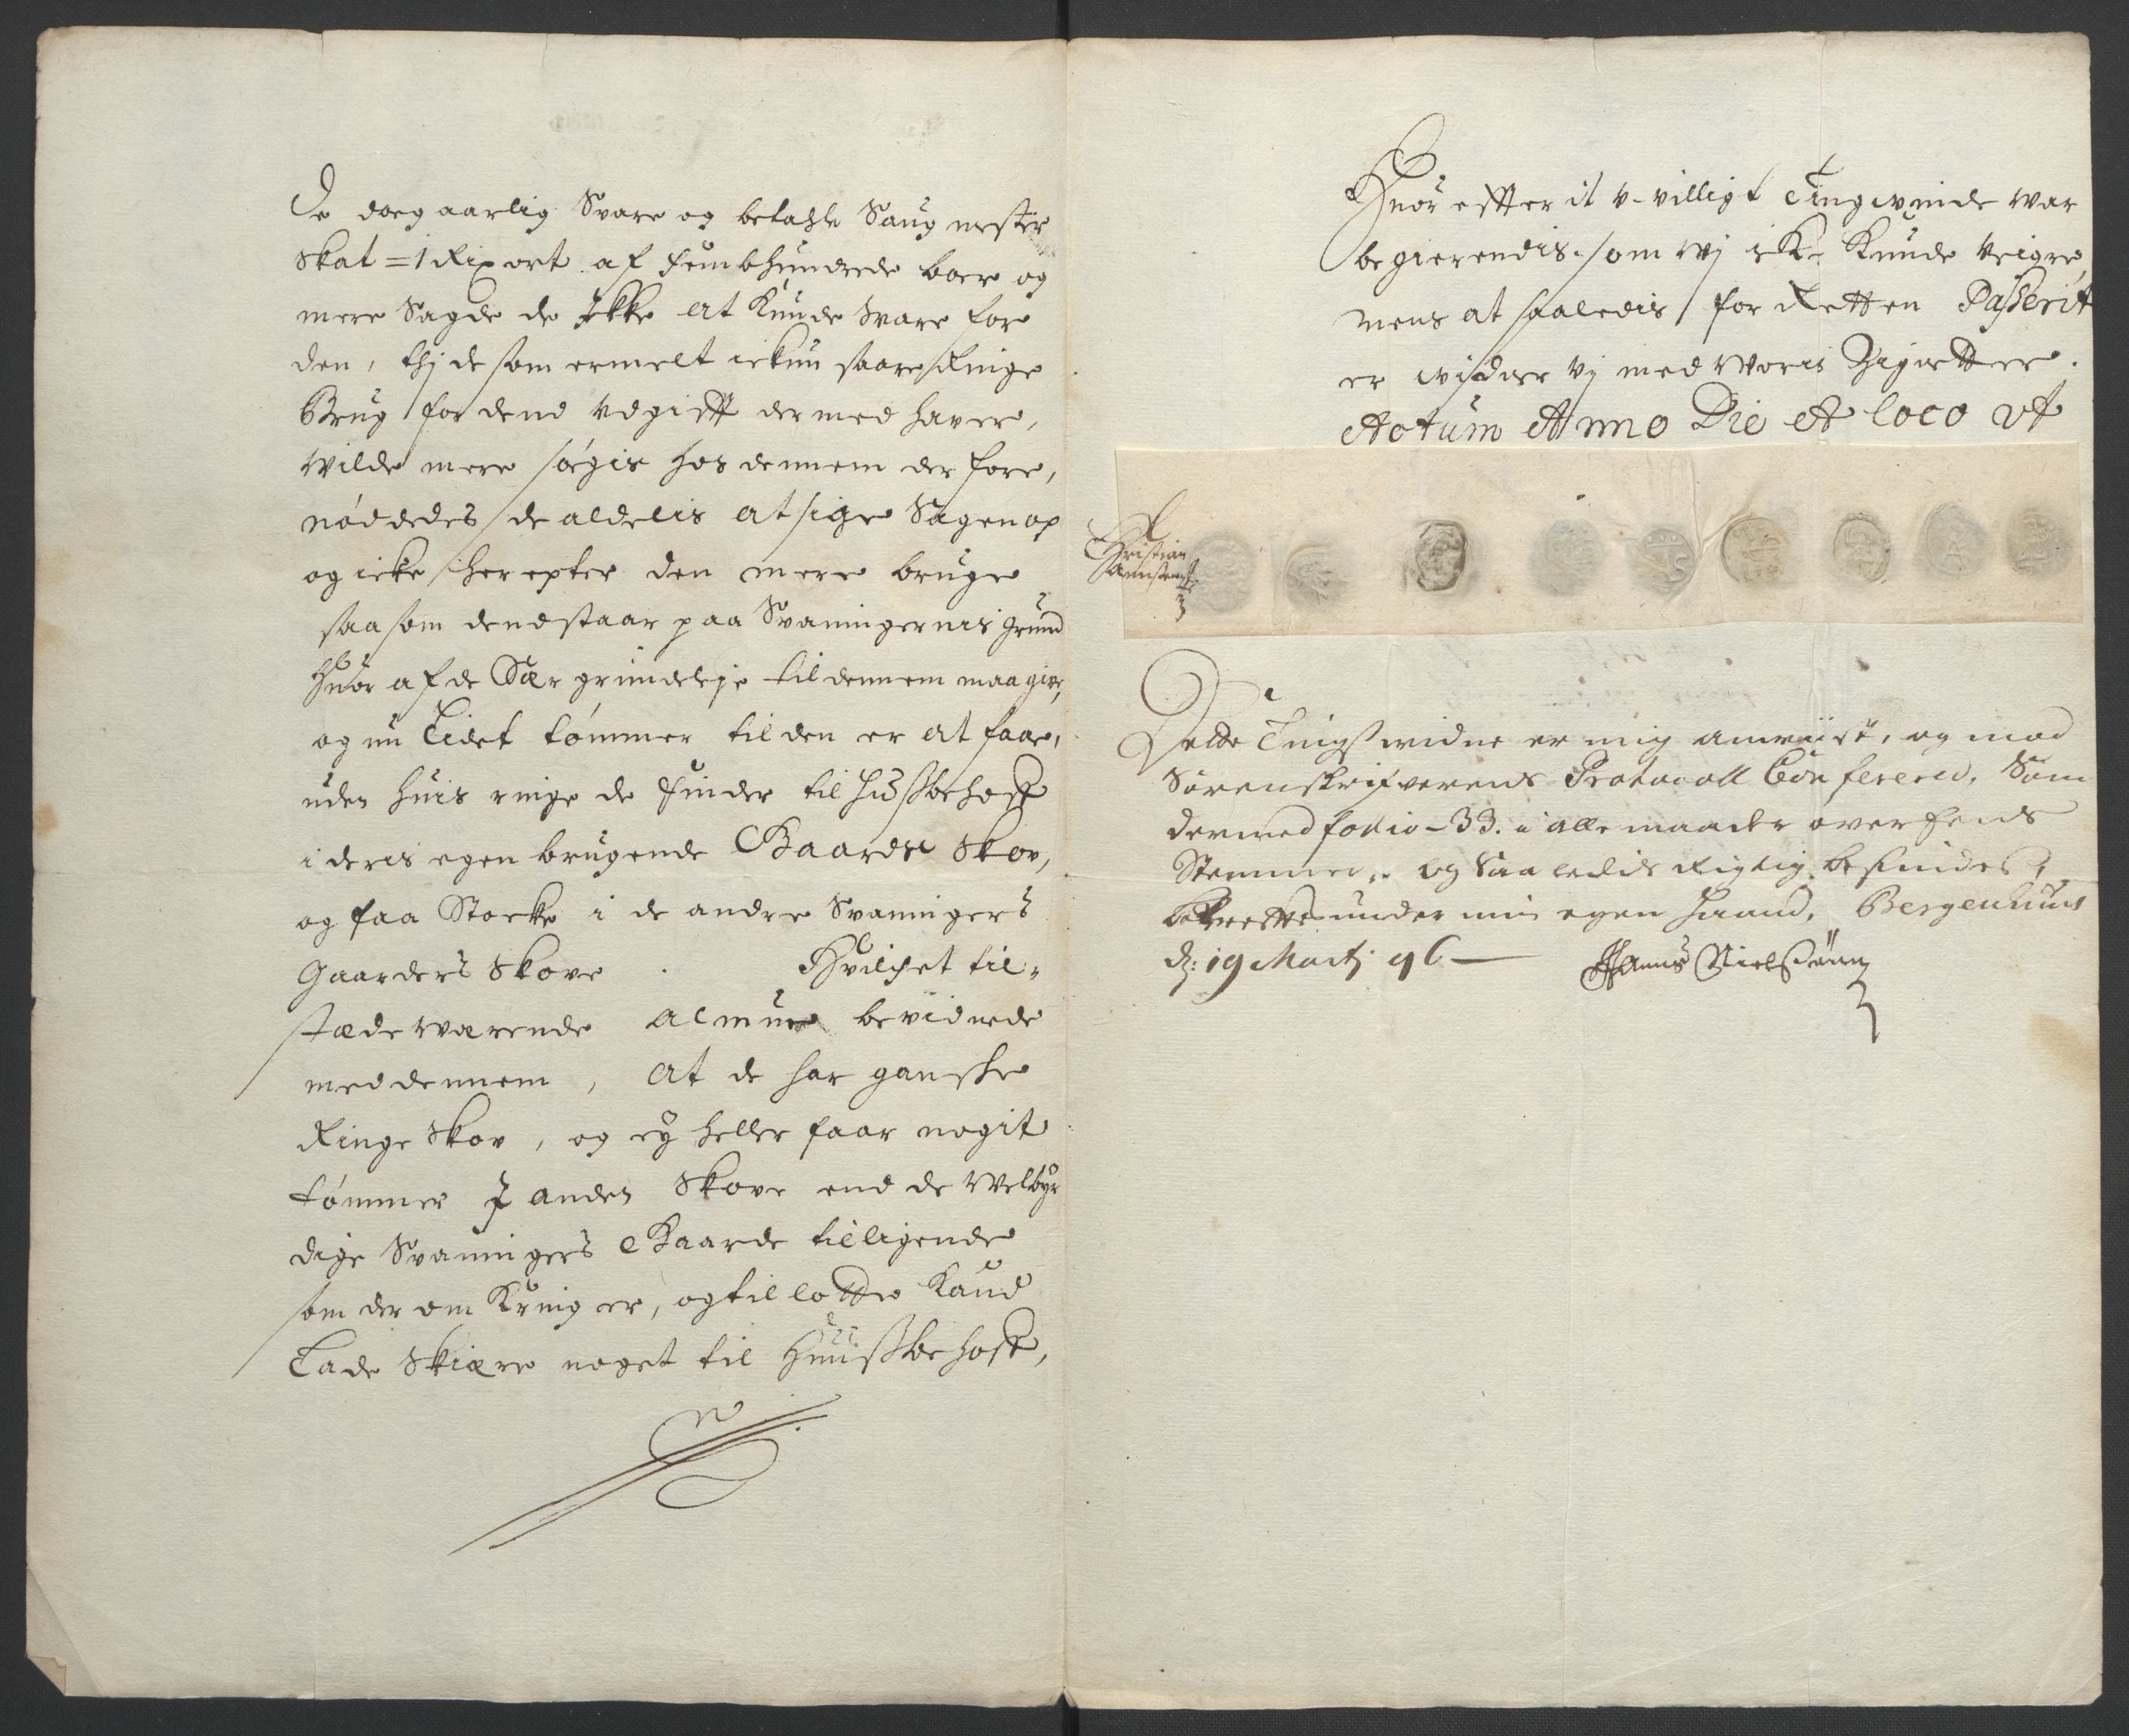 De dog aarlig Svare og betahle Saug mester
Skat = 1 Rixort af Fembhundrede boer og
mere Sagde de Ikke at Kunde Svare for
den, thj de som ermelt ickun saare Ringe
Brug for dend Udgifft dermed haver,
Wilde mere søgis hos dennem der fore,
nøddedes de aldelis at sige Sagen op
og icke her epter den mere bruge
saasom dend staar paa Svaningernis grund
huor af de Sær grundeleje til dennem maa give,
og nu Lidet tømmer til den er at faae,
uden huis ringe de finder til Hußbehoff
i deris egen brugende Gaards Skov,
og faa Stocke i de andre Svaningers
Gaarders Skove . Hvilchet til„
stæde wærende almue bevidnede
med dennem, at de har ganske
Ringe Skov, og ey heller faar nogit
tømmer I anden Skove end de Welbyr
dige Svaningers Gaarde tilligende
som der om Kring er, og til lotte Kand
Lade Skiære noget til Huußbehoff,
Huor effter it u-villigt Tingwinde war
begierendis, som wj icke Kunde Veigre,
mens at saaledis for Retten Passerit
er widner vj med Woris Zigneter.
Actum Anno Die et loco Ut
Christian
Dette Tingswidne er mig anviist, og med
Sorenskrifverens Protocoll Conferered, Som
dermed follio - 33. i alle maader overeens
Stemmer, og Saaledis Rigtig befindes,
bekreffter under min egen Haand, Bergenhuus
d: 19 Martj 96 — Hanns Nielßønn